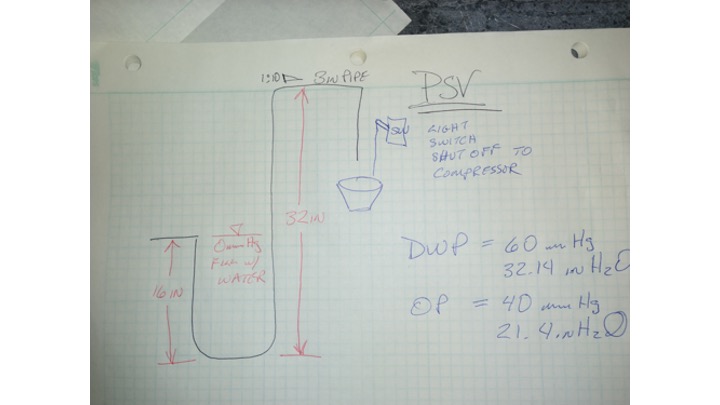 1:10 3IN PIPE
PSV
SW
LIGHT
SWITCH
SHUT OFF TO
COMPRESSOR
32IN
0mmHg
Full w/
WATER
16IN
DWP = 60 mm Hg
32.14 in H2O
OP = 40 mm Hg
21.4 in H2O